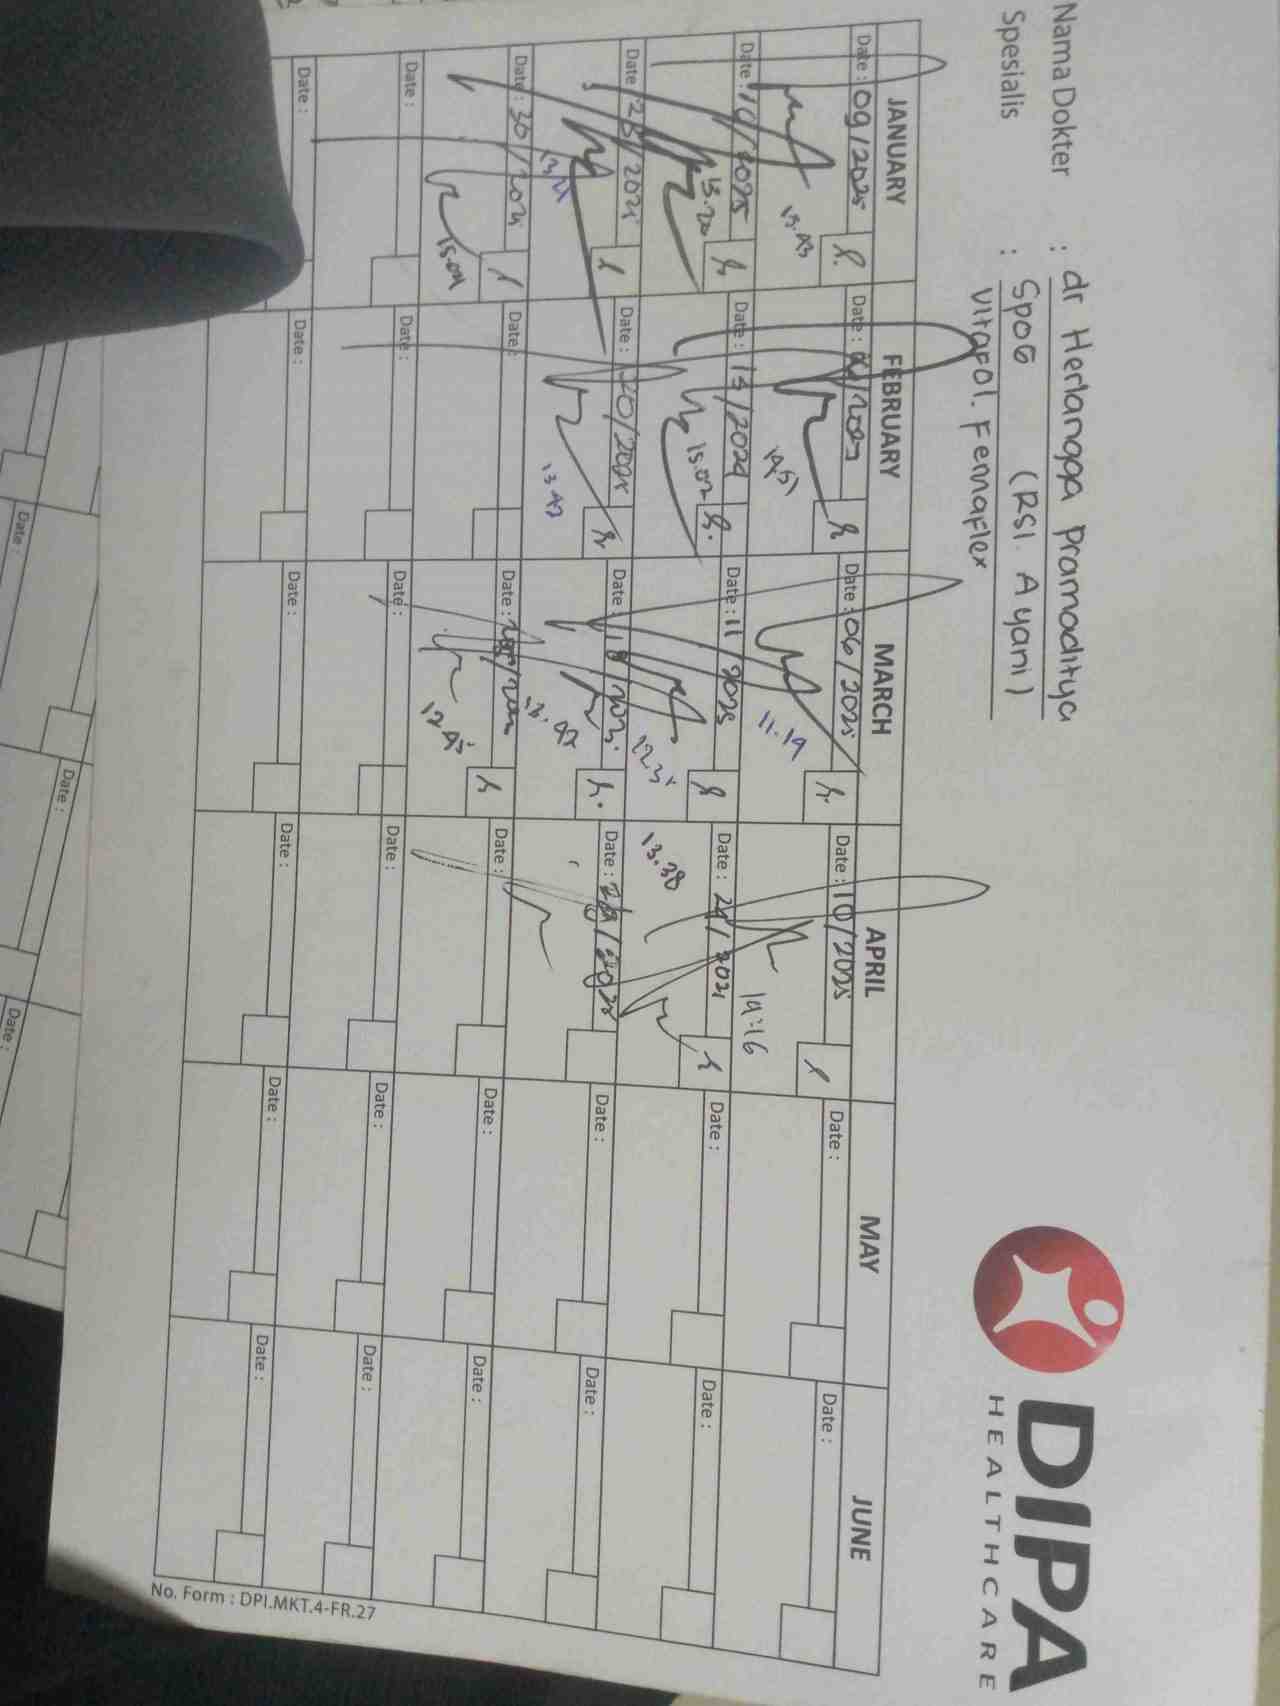 Nama Dokter : dr Herlangga Pramoditya
Spesialis : SpoG (RSI. A yani)
Vitafol. Femaflex
DIPA
HEALTHCARE
JANUARY FEBRUARY MARCH APRIL MAY JUNE
Date : 09/2025 Date : Date : 06/2025 Date : 10/2025 Date : Date :
15.43 14.51 11.19 14:16
Date : Date : 13/2024 Date : 11/2025 Date : 24/2021 Date : Date :
15.20 15.02 12.31 13.38
Date : 23/2021 Date : 20/2025 Date : 18/2025. Date : 28/2025 Date : Date :
13.21 13.42 13.42
Date : 30/2025 Date : Date : Date : Date : Date :
15.04 12.45
Date : Date : Date : Date : Date : Date :
Date : Date : Date : Date : Date : Date :
No. Form : DPI.MKT.4-FR.27
Date :
Date :
Date :